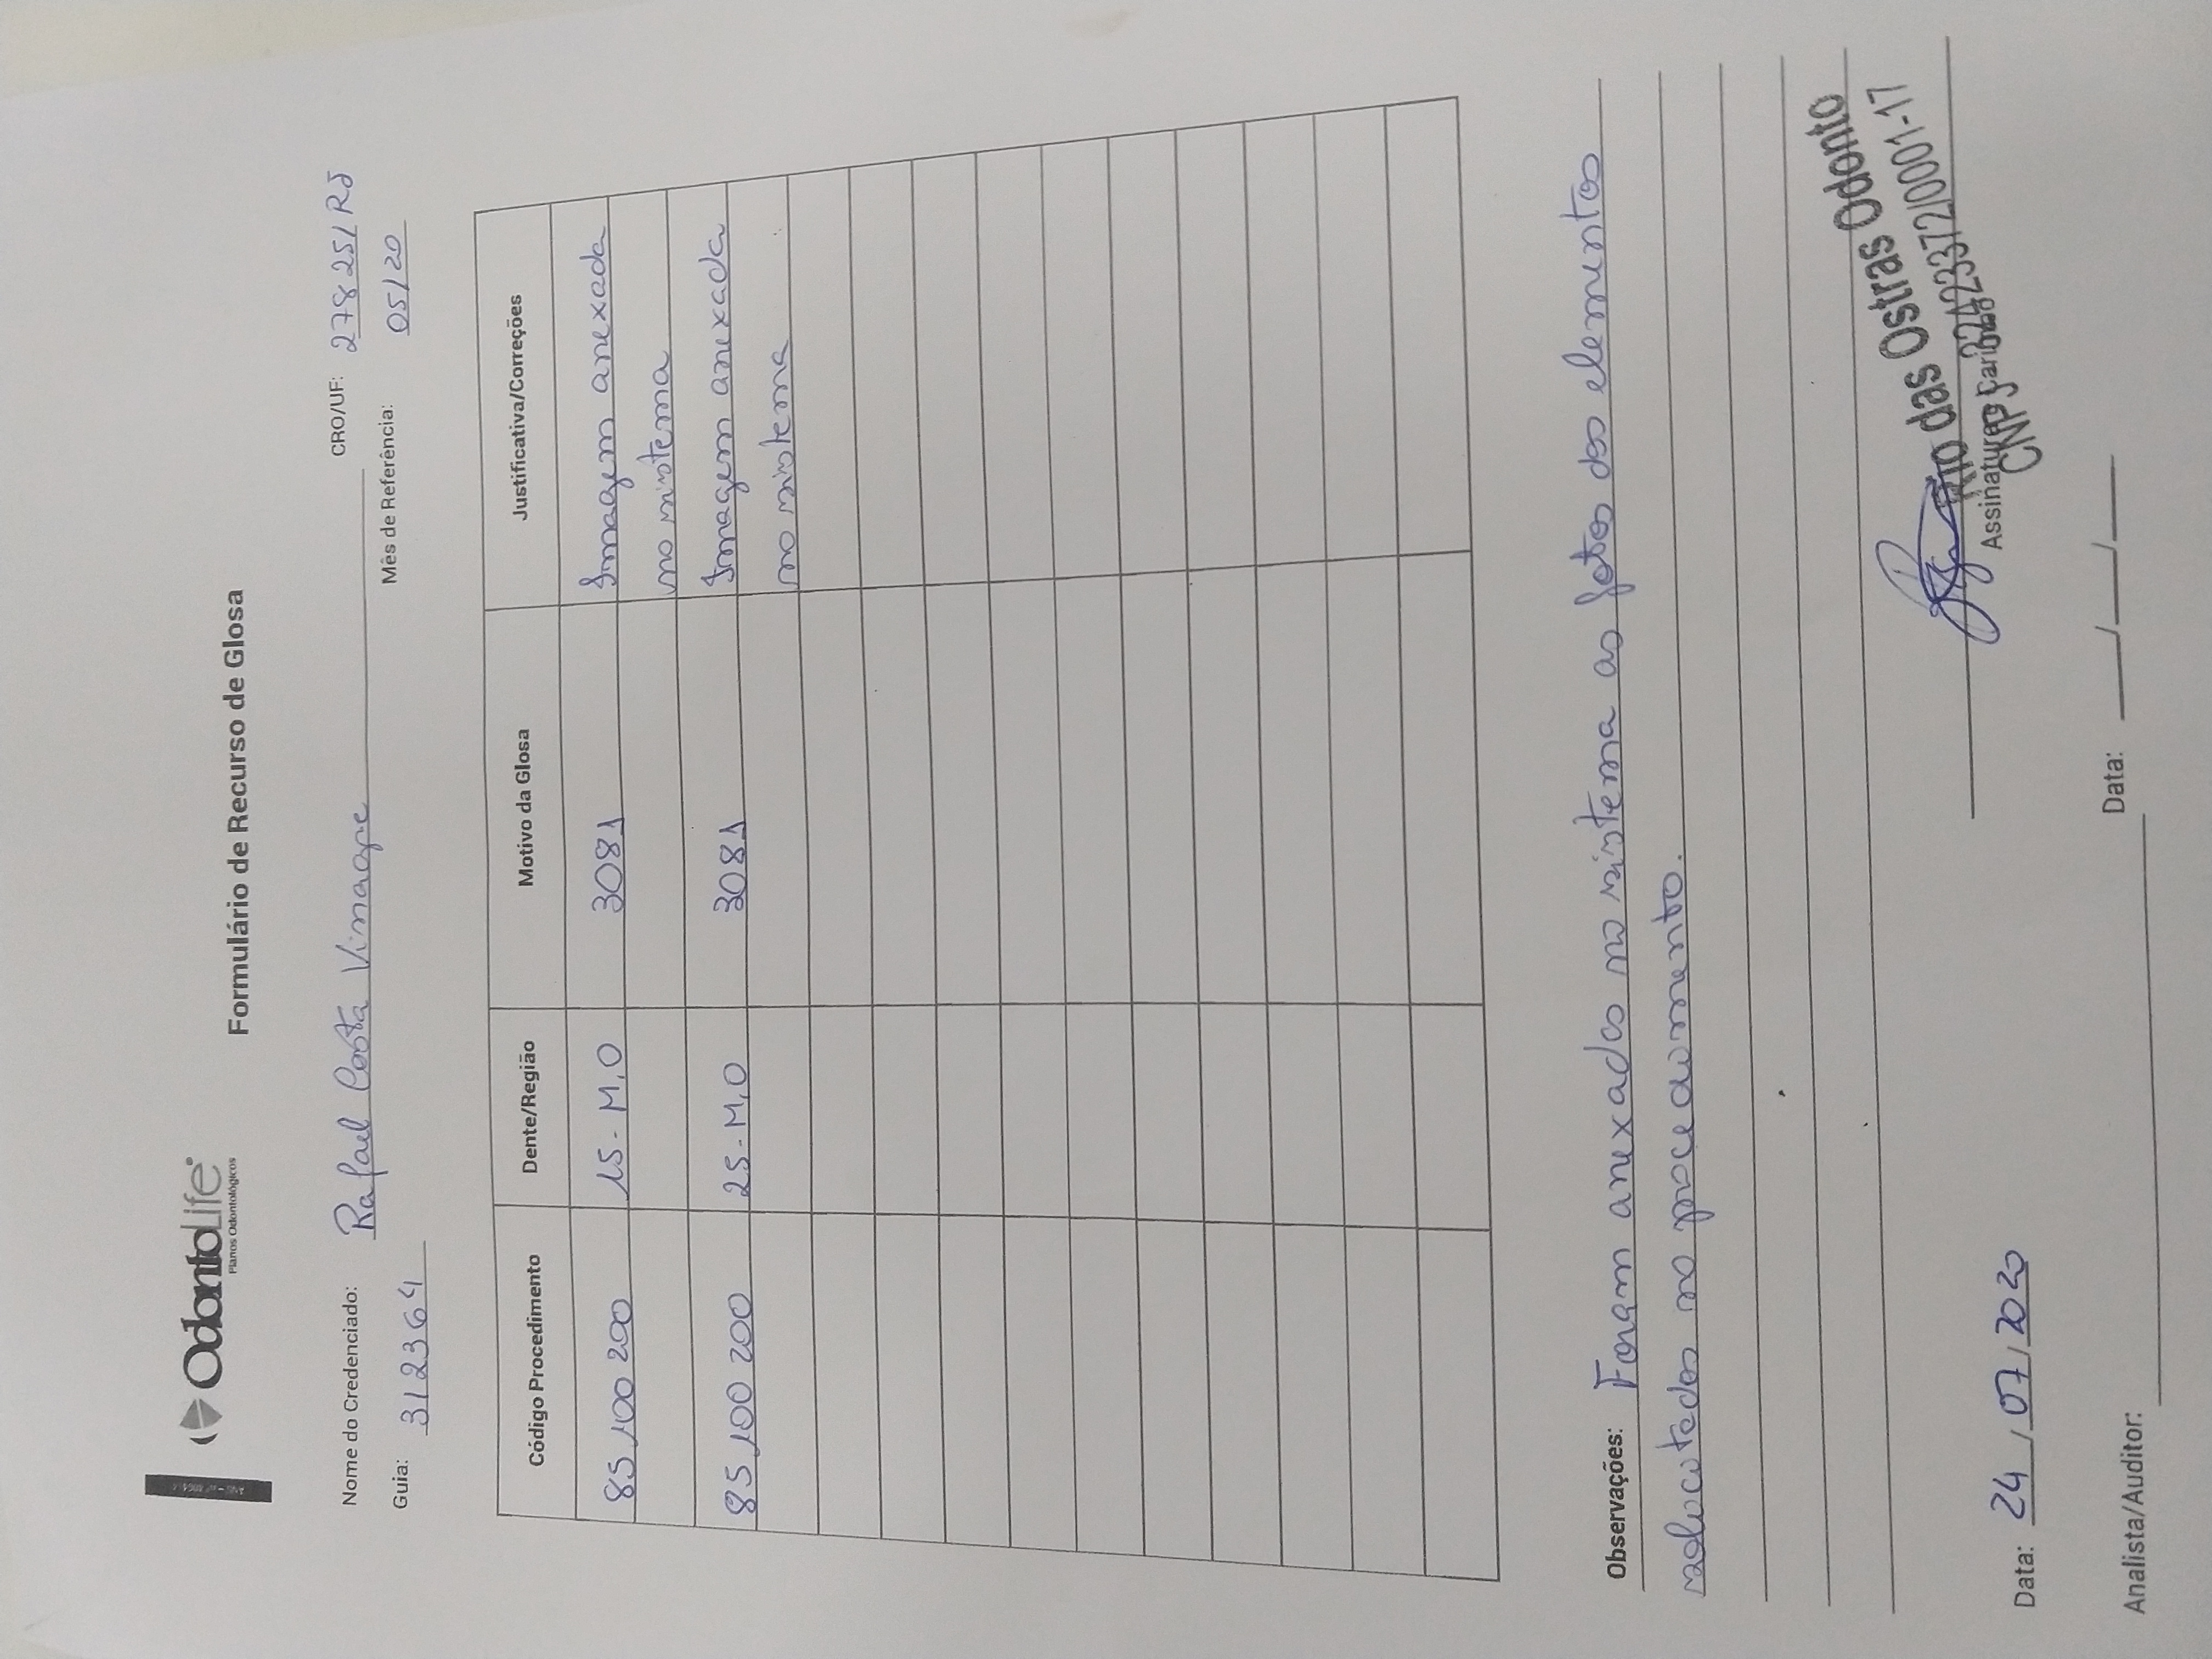 OdontoLife
Planos Odontológicos
Formulário de Recurso de Glosa
Nome do Credenciado: Rafael Costa Vinagre CRO/UF: 27825/RJ
Guia: 312364 Mês de Referência: 05/20
Código Procedimento Dente/Região Motivo da Glosa Justificativa/Correções
85.100 200 15 - M,O 3081 Imagem anexada
no sistema
85.100 200 25 - M,O 3081 Imagem anexada
no sistema
Observações: Foram anexados no sistema as fotos dos elementos
solicitados no procedimento.
Rio das Ostras Odonto
Assinatura e Carimbo
CNPJ
Data: 24/07/2020
Analista/Auditor: Data: __/__/__